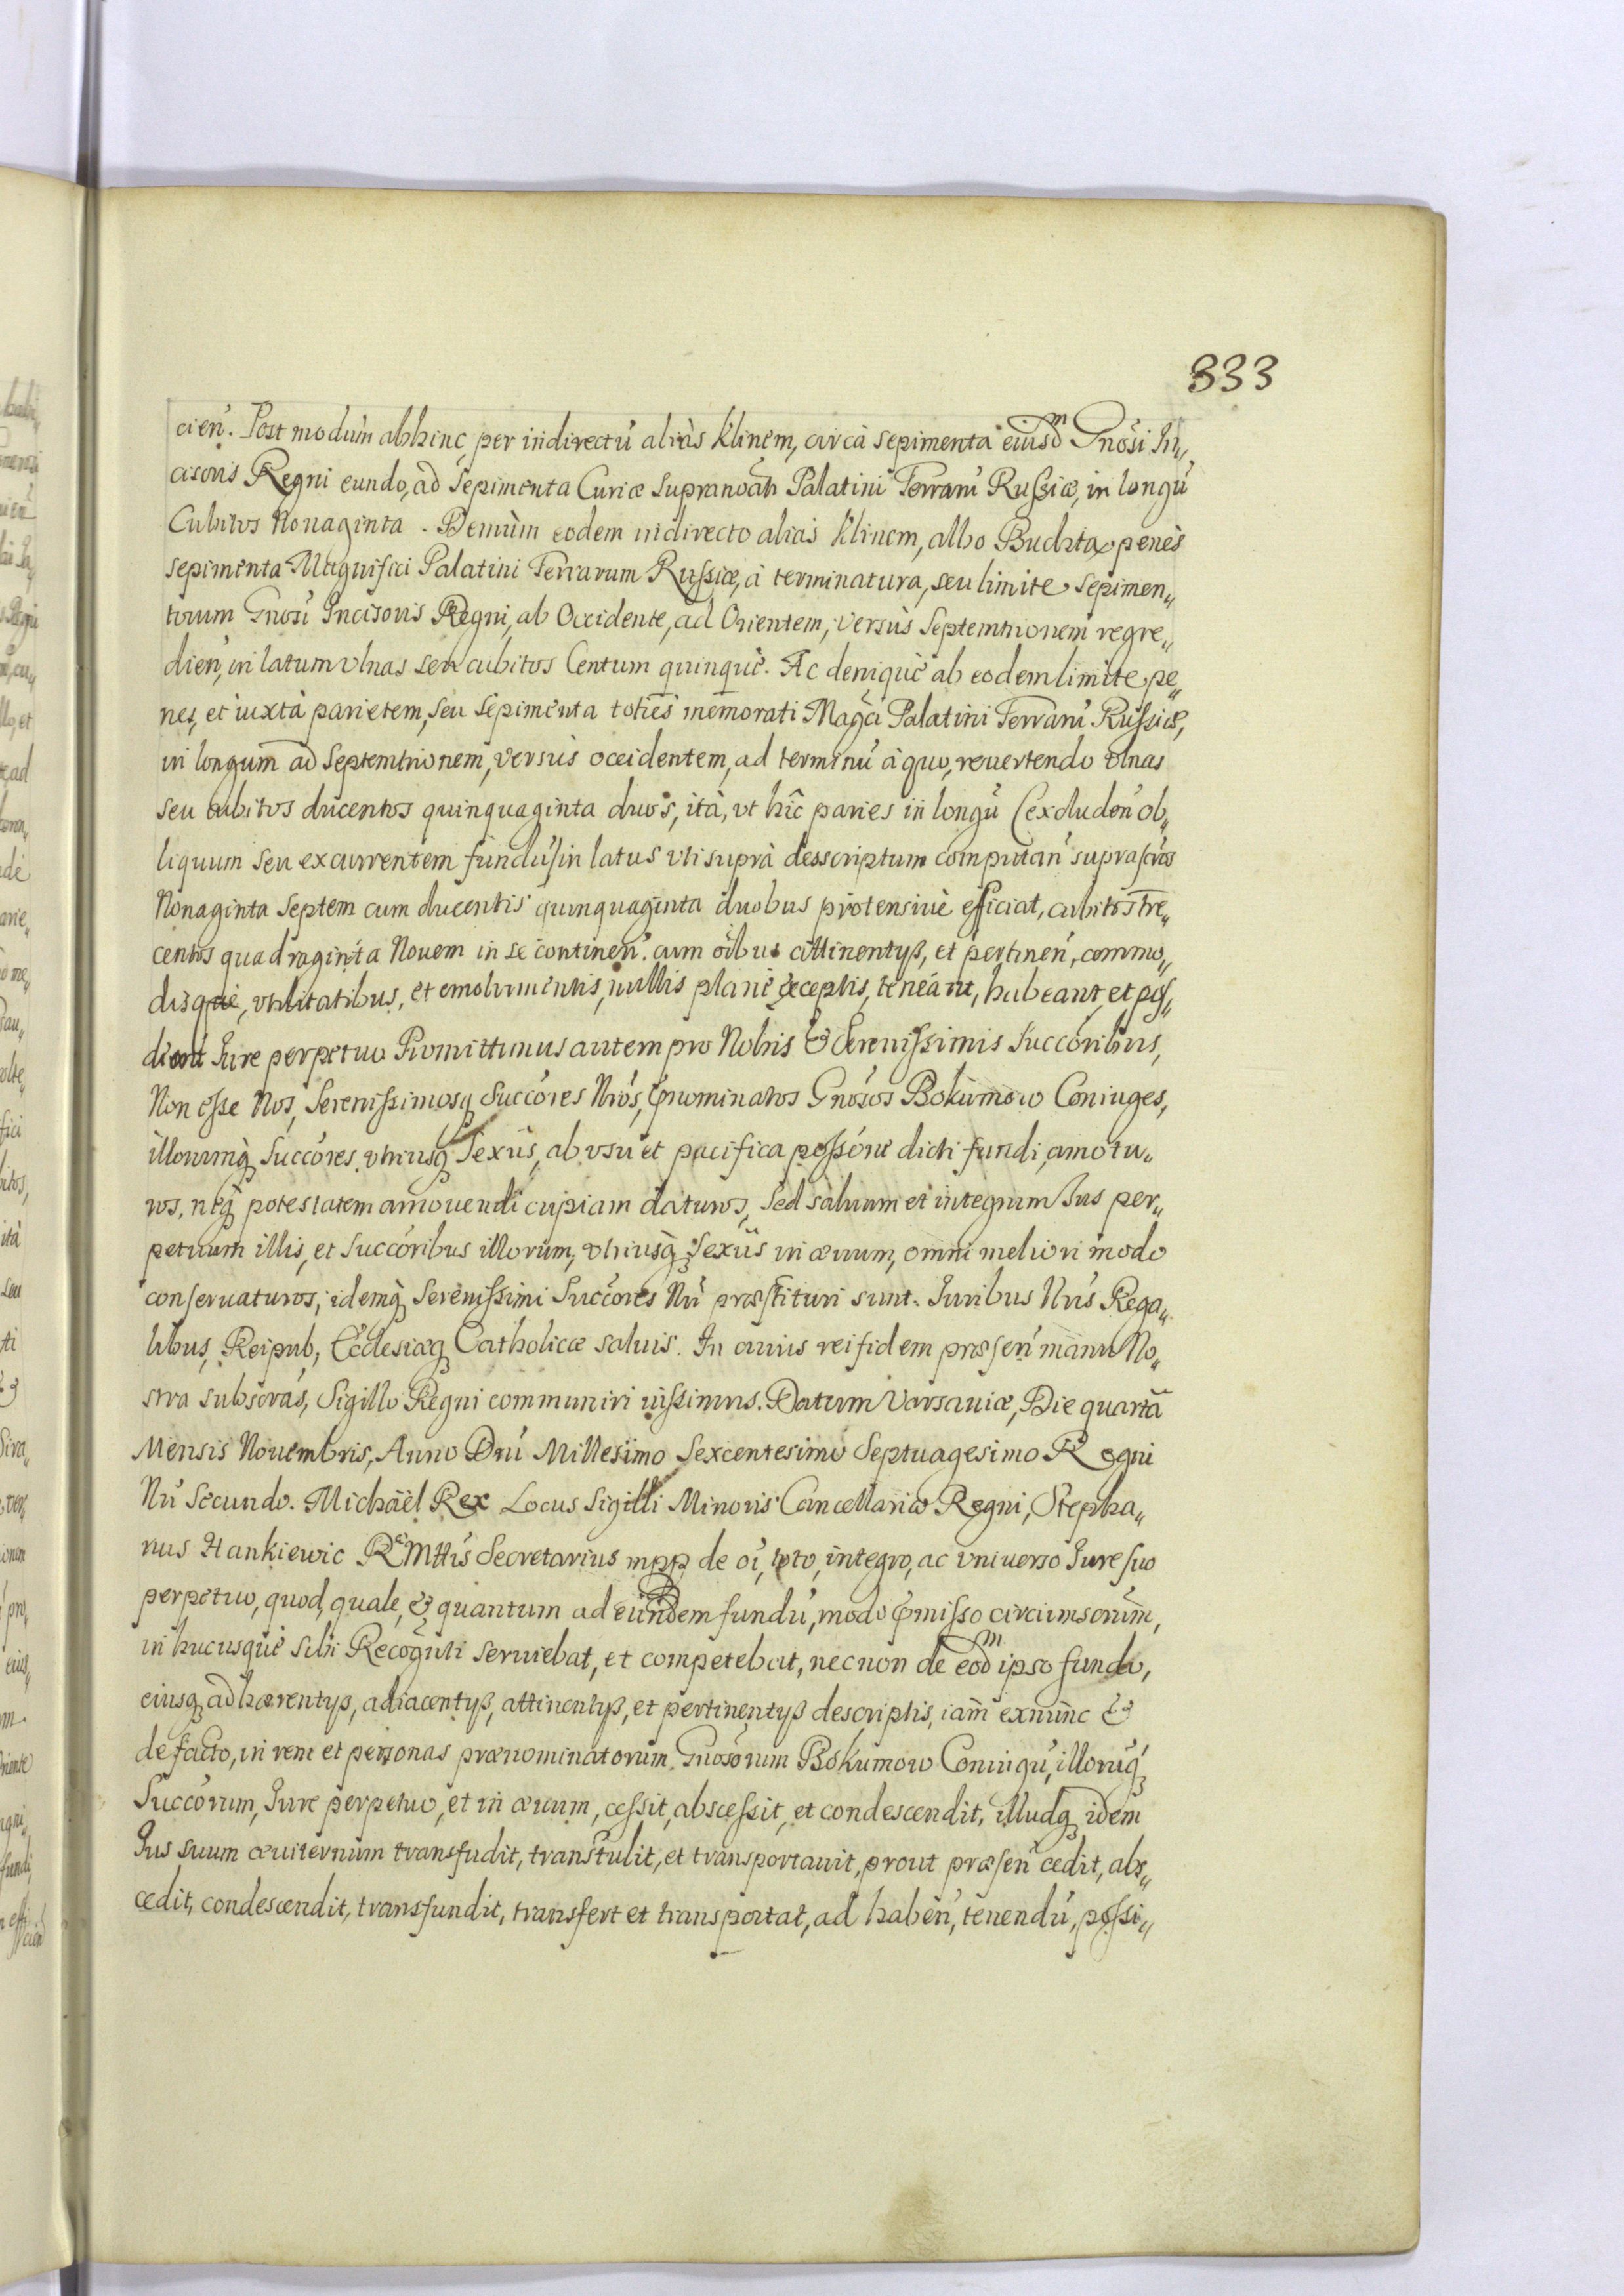 333
cień. Post modum abhinc per indirectū aliàs Klinem, circà sepimenta eiusdm Gnosi In„
cisoris Regni eundo, ad Sepimenta Curiæ supranoāti Palatini Terrarū Russiæ, in longū
Cubitos Nonaginta. Demùm eodem indirecto aliàs Klinem, albo Buchta, penès
sepimenta Magnifici Palatini Terrarum Russiæ, à terminatura, seu limite sepimen„
torum Gnosi Incisoris Regni, ab Occidente, ad Orientem, versùs Septemtrionem regre„
dień, in latum vlnas seu cubitos Centum quinquè. Ac deniquè ab eodem limite pe„
nes, et iuxtà parietem, seu sepimenta totiēs memorati Magci Palatini Terrarū Russiæ,
in longum ad Septemtrionem, versùs occidentem, ad terminū à quo, reuertendo vlnas
seu cubitos ducentos quinquaginta duos, ità, vt hîc paries in longū (excludeń ob„
liquum seu excurrentem fundūs in latus vti suprà desscriptum computań suprascros
Nonaginta septem cum ducentis quinquaginta duobus protensiuè efficiat, cubitos tre„
centos quadraginta Nouem in se contineń. cum oībus attinentyß, et pertineń, commo„
disquè, vtilitatibus, et emolumentis, nullis planè exceptis, teneānt, habeant, et pos„
dicant Iure perpetuo Promittimus autem pro Nobis & Serenissimis Succoribus,
Non esse Nos, Serenissimosq Succores Nros, prnominatos Gnosos Bokumow Coniuges,
illorumq Succores, vtriusq Sexûs, ab vsu et pacifica possone dicti fundi, amotu„
ros, neq potestatem amouendi cupiam daturos, sed saluum et integrum Ius per„
petuum illis, et Succoribus illorum, vtriusq Sexûs in æuum, omni meliori modo
conseruaturos; idemq Serenissimi Succores Nri præstituri sunt. Iuribus Nris Rega„
libus, Reipub, Ecclesiæq Catholicæ saluis. In cuius rei fidem præseń manu No„
stra subscras, Sigillo Regni communiri iussimus. Datum Varsauiæ, Die quarta
Mensis Nouembris, Anno Dnī Millesimo Sexcentesimo Septuagesimo Regni
Nri Secundo. Michäel Rex Locus Sigilli Minoris Cancellariæ Regni, Stepha„
nus Hankiewic Mttis Secretarius mpp de oī, toto, integro, ac vniuerso Iure suo
perpetuo, quod, quale, & quantum ad eundem fundū, modo prmisso circumsonūm,
in hucusquè sibi Recognti seruiebat, et competebat, necnon de eodm ipso fundo,
eiusq adhærentyß, adiacentyß, attinentyß, et pertinentyß descriptis, iam exnunc &
de facto, in rem et personas prænominatorum Gnosorum Bokumow Coniugū, illorūq
Succorum, Iure perpetuo, et in æuum, cessit, abscessit, et condescendit, illudq idem
Ius suum æuiternum transfudit, transtulit, et transportauit, prout præseń cedit, abs„
cedit, condescendit, transfundit, transfert et transportat, ad habeń, tenendū, possi„